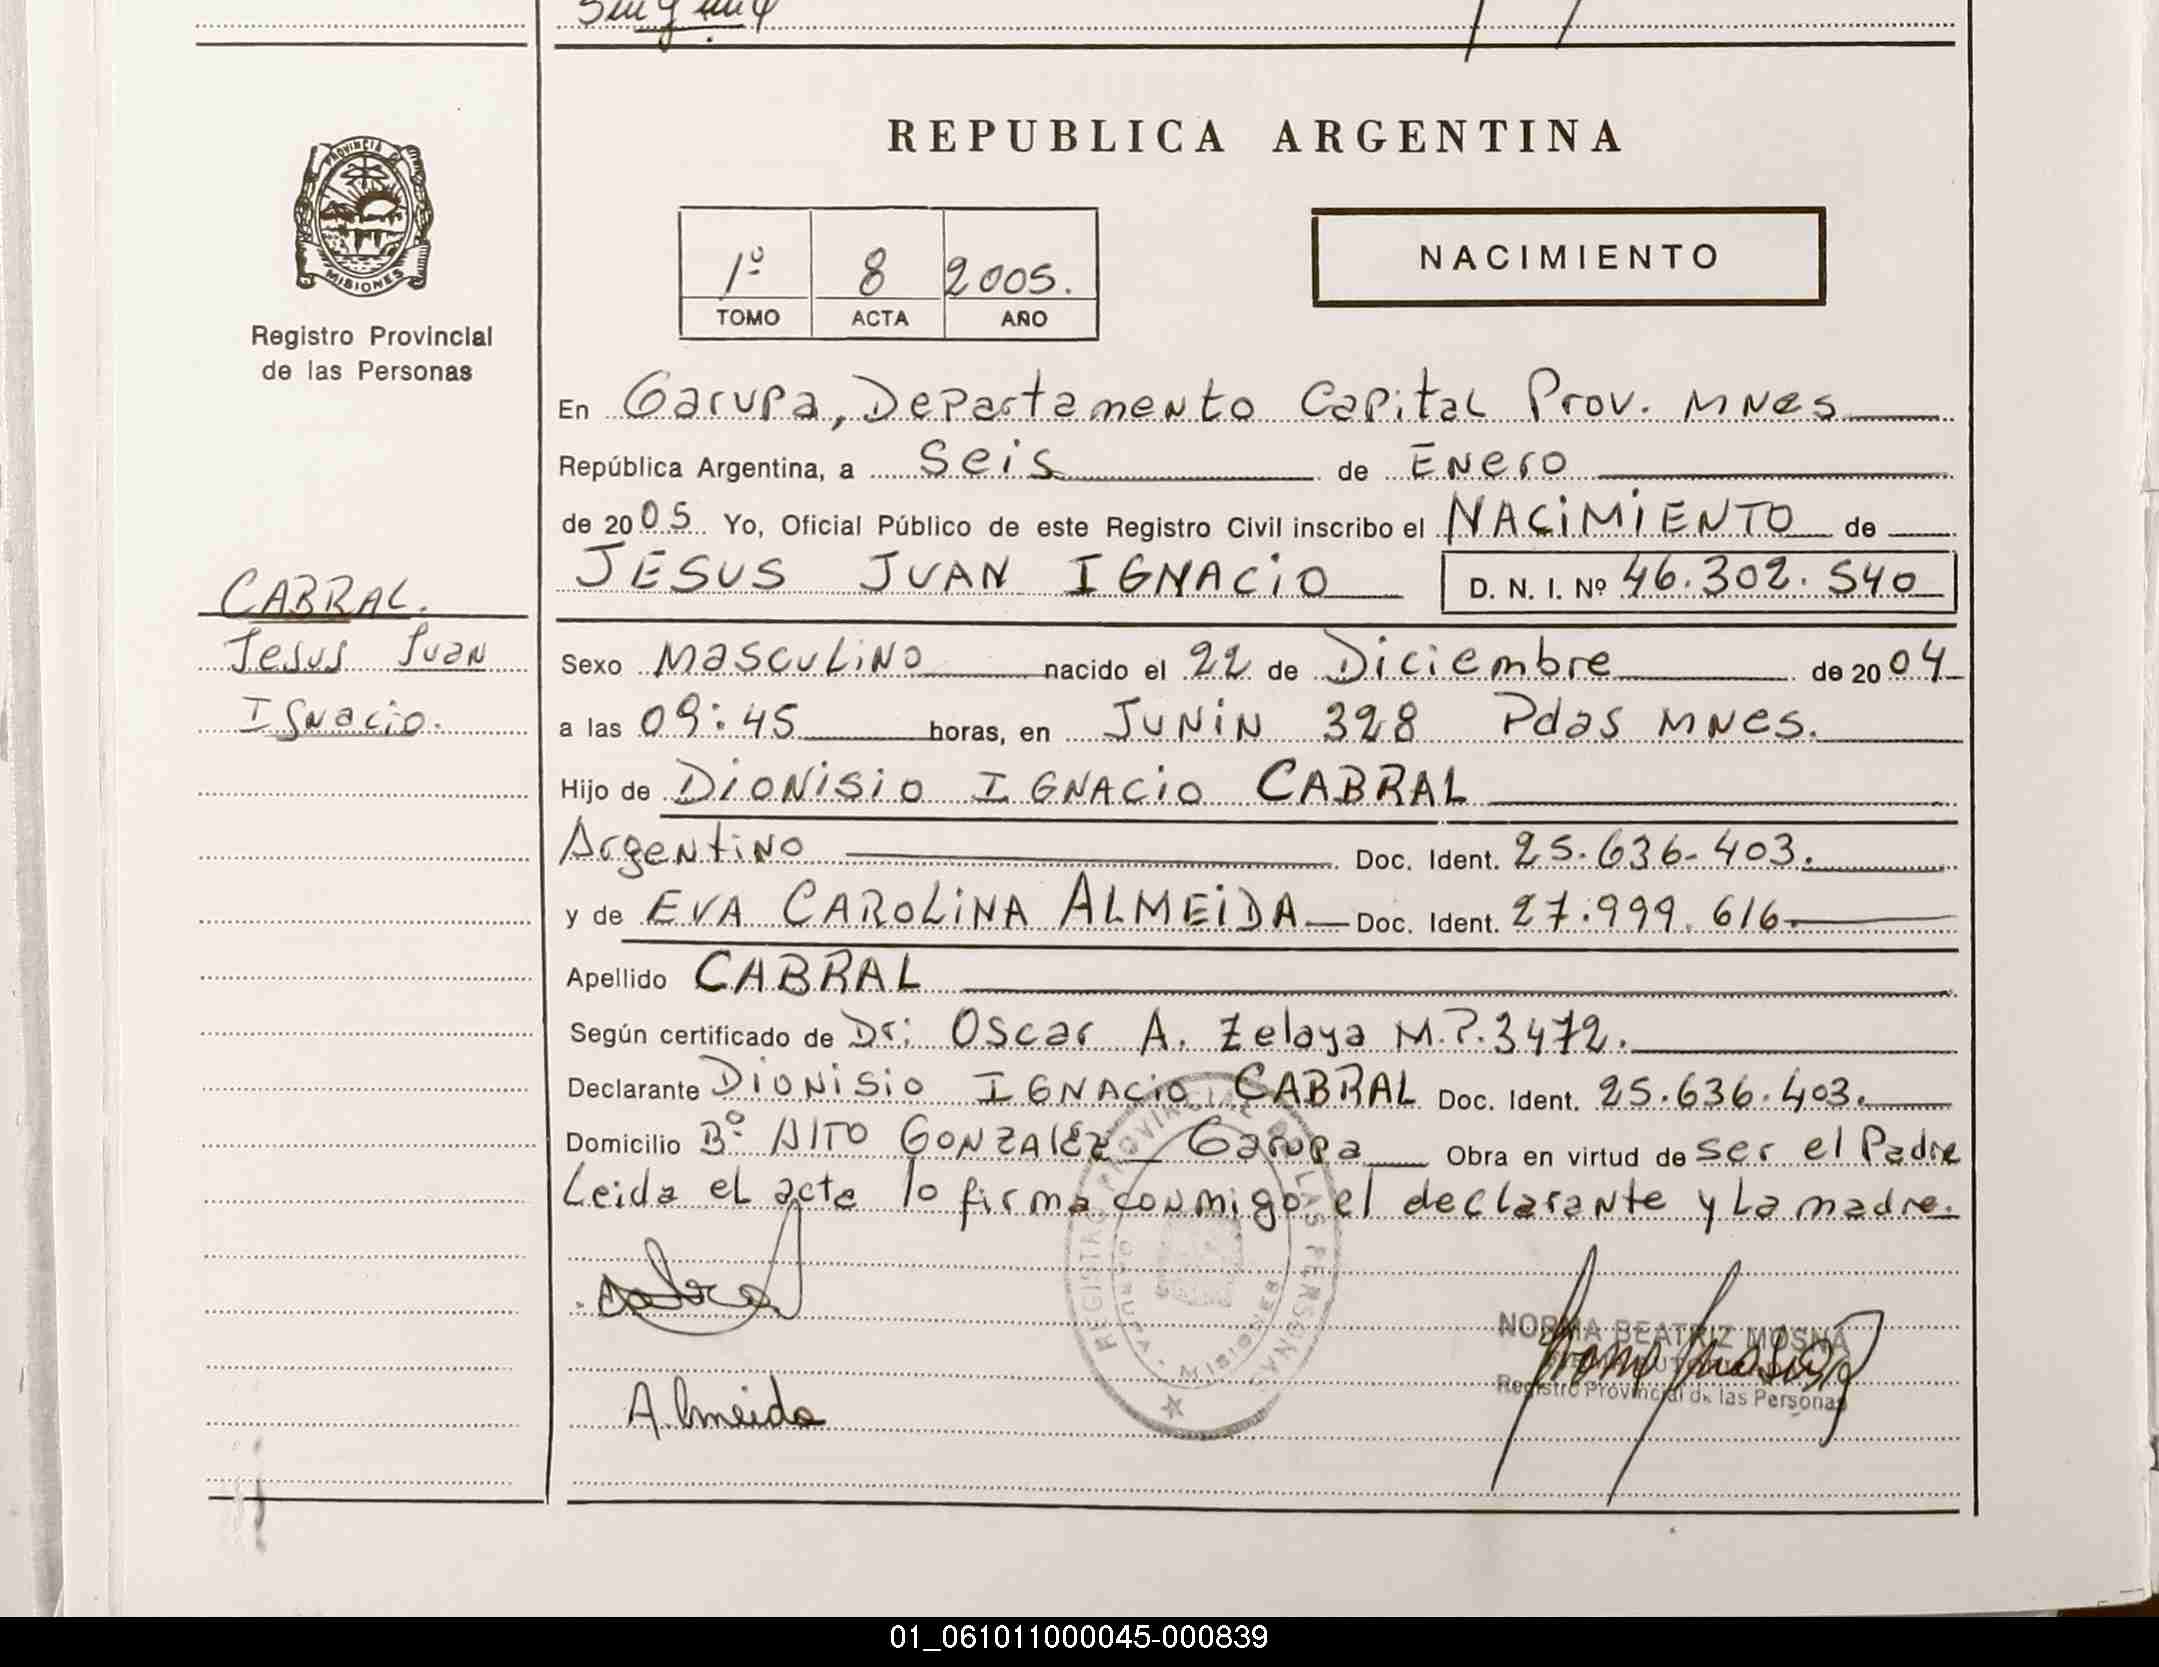 REPUBLICA ARGENTINA
PROVINCIA DE
MISIONES
Registro Provincial
de las Personas
1º 8 2005.
TOMO ACTA AÑO
NACIMIENTO
En Garupa, Departamento Capital Prov. MNes
República Argentina, a Seis de Enero
de 2005 Yo, Oficial Público de este Registro Civil inscribo el NACIMIENTO de
JESUS JUAN IGNACIO D. N. I. Nº 46.302.540
CABRAL.
Jesus Juan
Ignacio.
Sexo Masculino nacido el 22 de Diciembre de 2004
a las 09:45 horas, en JUNIN 328 Pdas MNes.
Hijo de DIONISIO IGNACIO CABRAL
Argentino Doc. Ident. 25.636.403.
y de EVA CAROLINA ALMEIDA Doc. Ident. 27.999.616
Apellido CABRAL
Según certificado de Dr: Oscar A. Zelaya M.P. 3472.
Declarante DIONISIO IGNACIO CABRAL Doc. Ident. 25.636.403.
Domicilio Bº Alto GONZALEZ Garupa Obra en virtud de ser el Padre
Leida el acta lo firma conmigo el declarante y La madre.
REGISTRO PROVINCIAL DE LAS PERSONAS
MISIONES
Cabral
NORMA BEATRIZ MOSNA
Registro Provincial de las Personas
Almeida
01_061011000045-000839